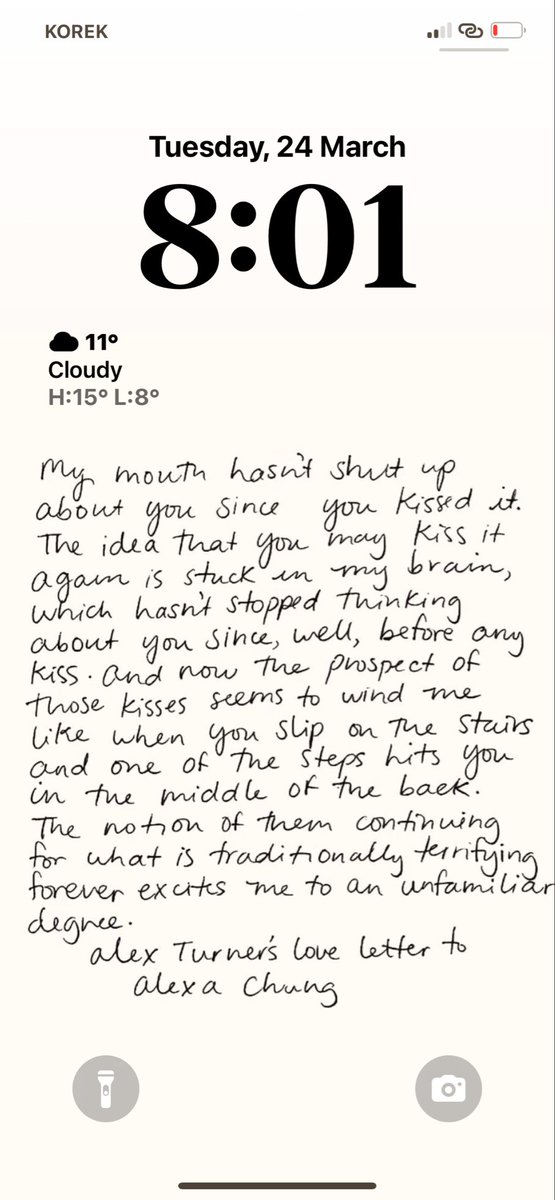 KOREK
Tuesday, 24 March
8:01
11°
Cloudy
H:15° L:8°
My mouth hasn't shut up
about you since you kissed it.
The idea that you may kiss it
again is stuck in my brain,
which hasn't stopped thinking
about you since, well, before any
kiss. And now the prospect of
those kisses seems to wind me
like when you slip on the stairs
and one of the steps hits you
in the middle of the back.
The notion of them continuing
for what is traditionally terrifying
forever excites me to an unfamiliar
degree.
Alex Turner's love letter to
Alexa Chung